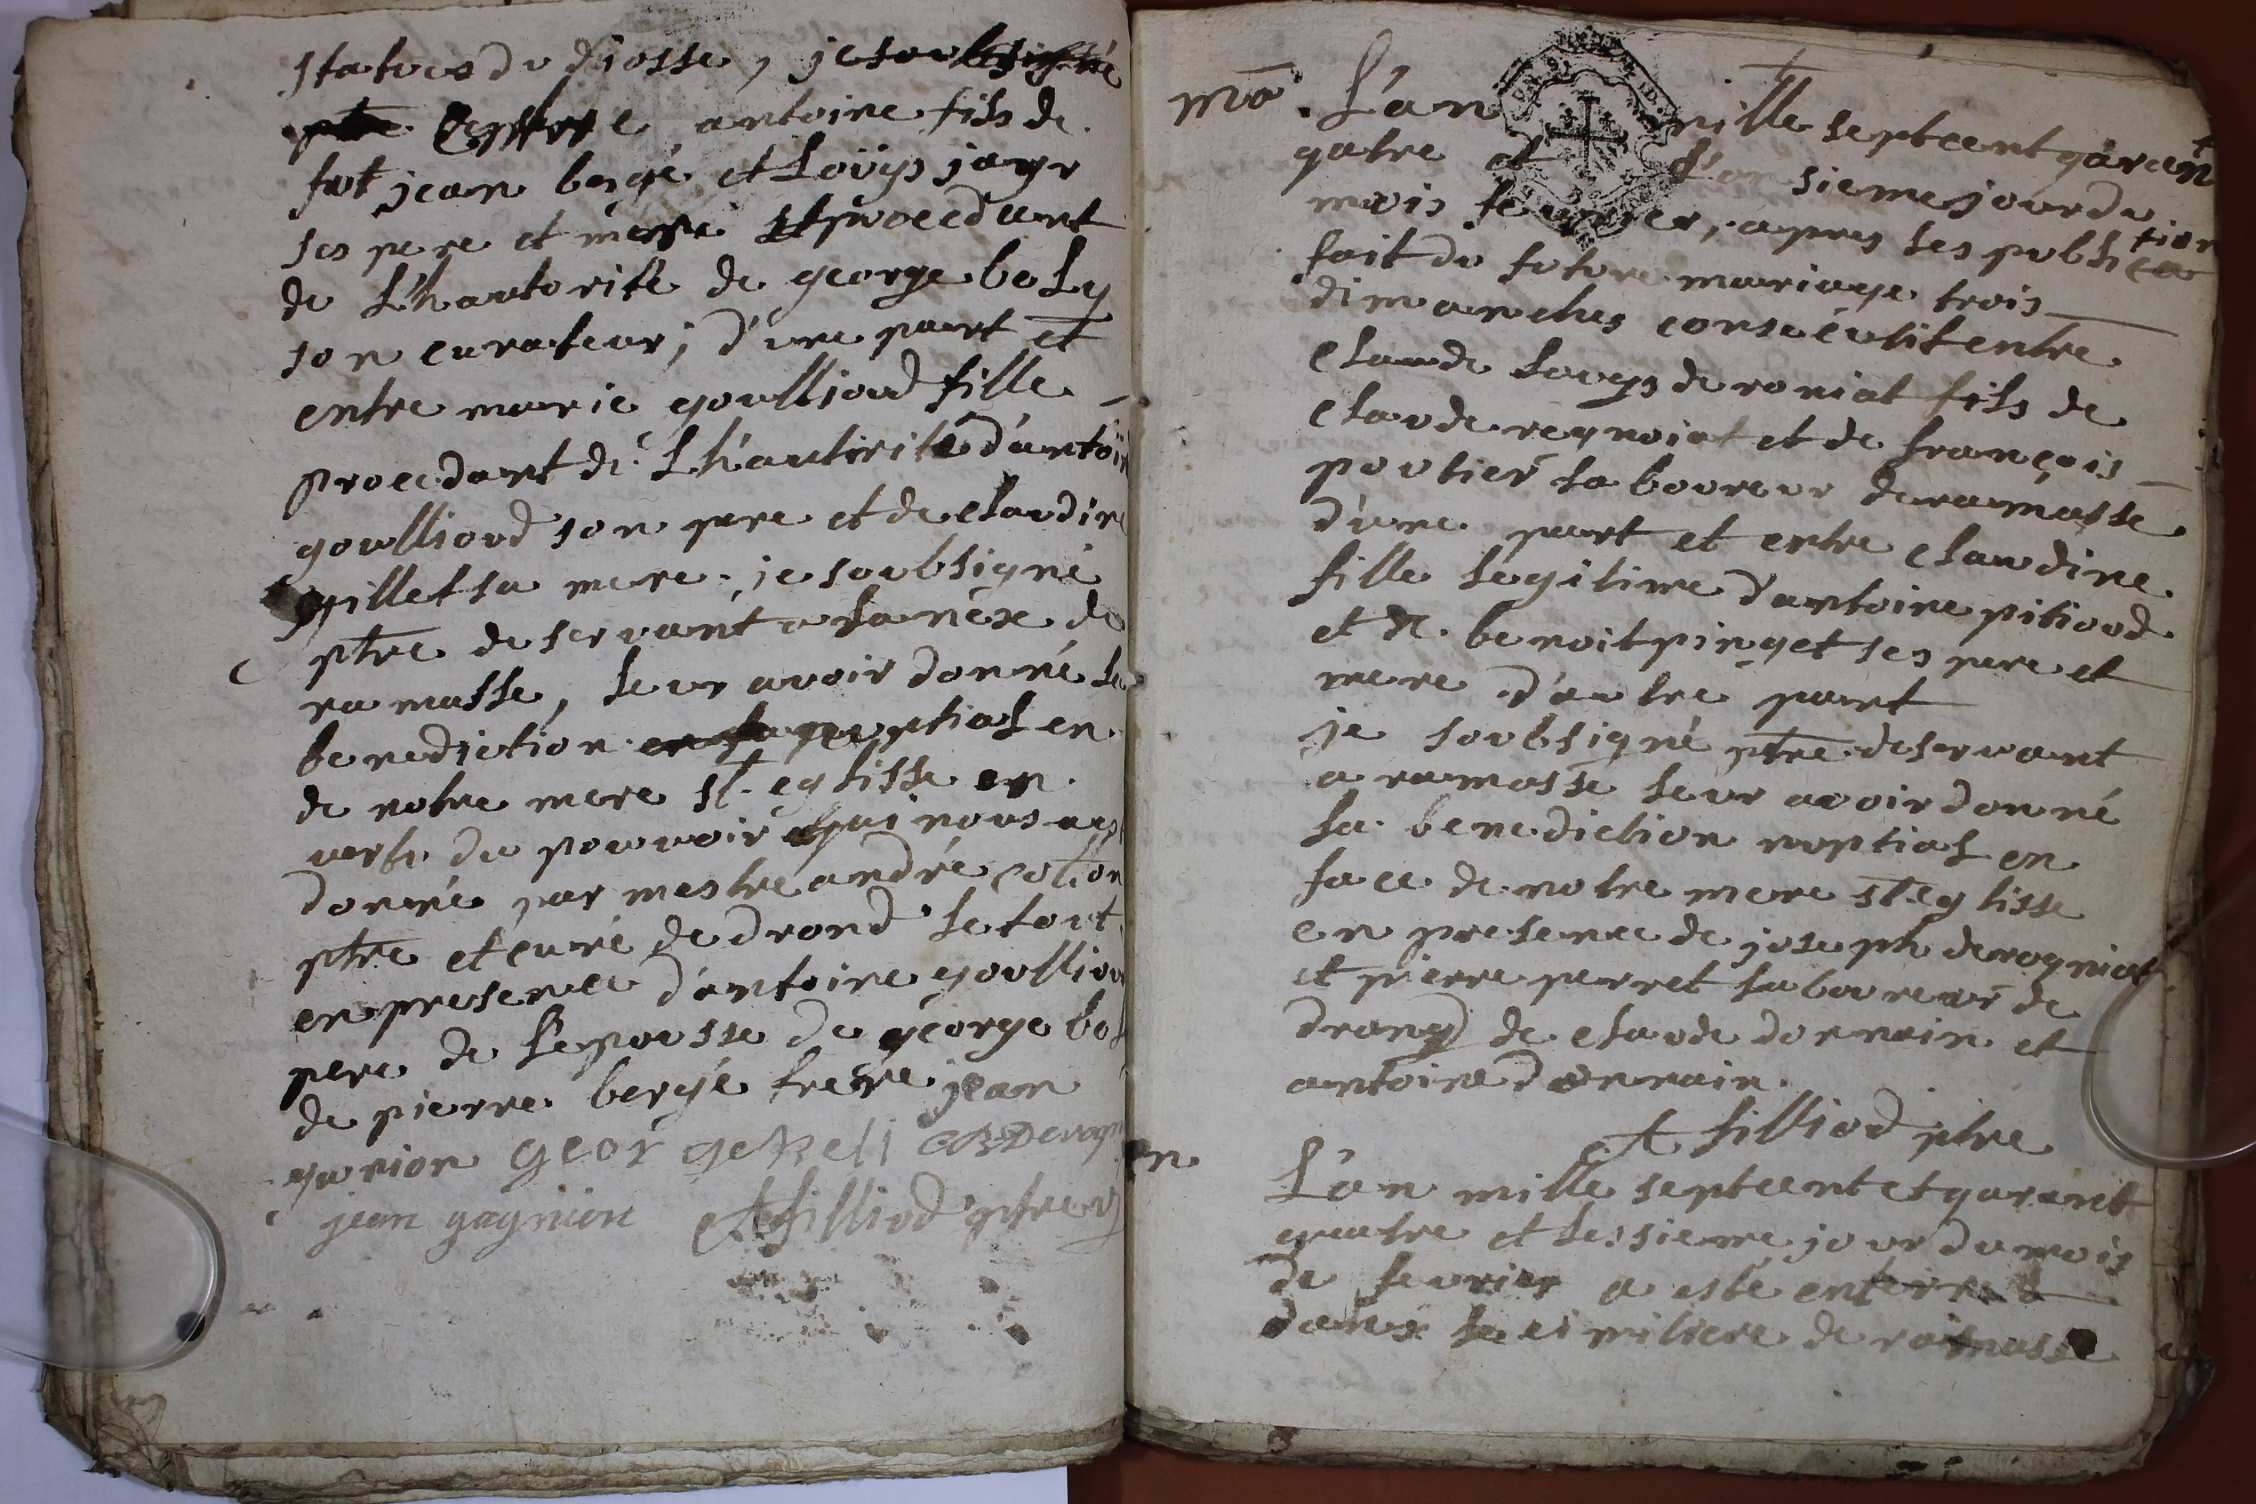 statues du diosse, je soubsigné
ptre entre antoine fils de
fut jean bergé et Loüys jayr
ses pere et mere et procedant
de Lhautorité de george boly
son curateur, d'une part et
entre marie goullioud fille
procedant de Lhautirité d'antoin
goullioud son pere et de claudine
gillet sa mere. je soubsigné
ptre deservant a Lanéxe de
ramasse, leur avoir donné la
benediction nuptial en
de notre mere st. eglisse en
vertu du pouvoir qui nous a est
donné par mestre andré cotion
ptre et curé de drond le tout
en presence d'antoine goulliou
pere de Lepousse de george bol
de pierre bergé frere jean
gunion george Beli Derogn
jean gagnion filliod ptre v
ma. L'an mille septcent garent
gatre et L'onsieme jour du
mois fevrier, apres les publication
fait du future mariage trois
dimanches consécutif entre
claude Louys deroniat fils de
claude reynoiat et de françois
poutier laboureur de ramasse
d'une part et entre claudine
fille legitime d'antoine pitioud
et de benoit pinget ses pere et
mere d'autre part
je soubsigné ptre deservant
a ramasse leur avoir donné
la benediction nuptial en
face de notre mere st. eglisse
en presence de joseph derogniat
et pierre perret laboureur de
drong de claude donnain et
antoine donnain.
filliod ptre
en L'an mille septcent et garant
quatre et le ssieme jour du mois
de fevrier a esté enterré
dans le cimitiere de ramasse